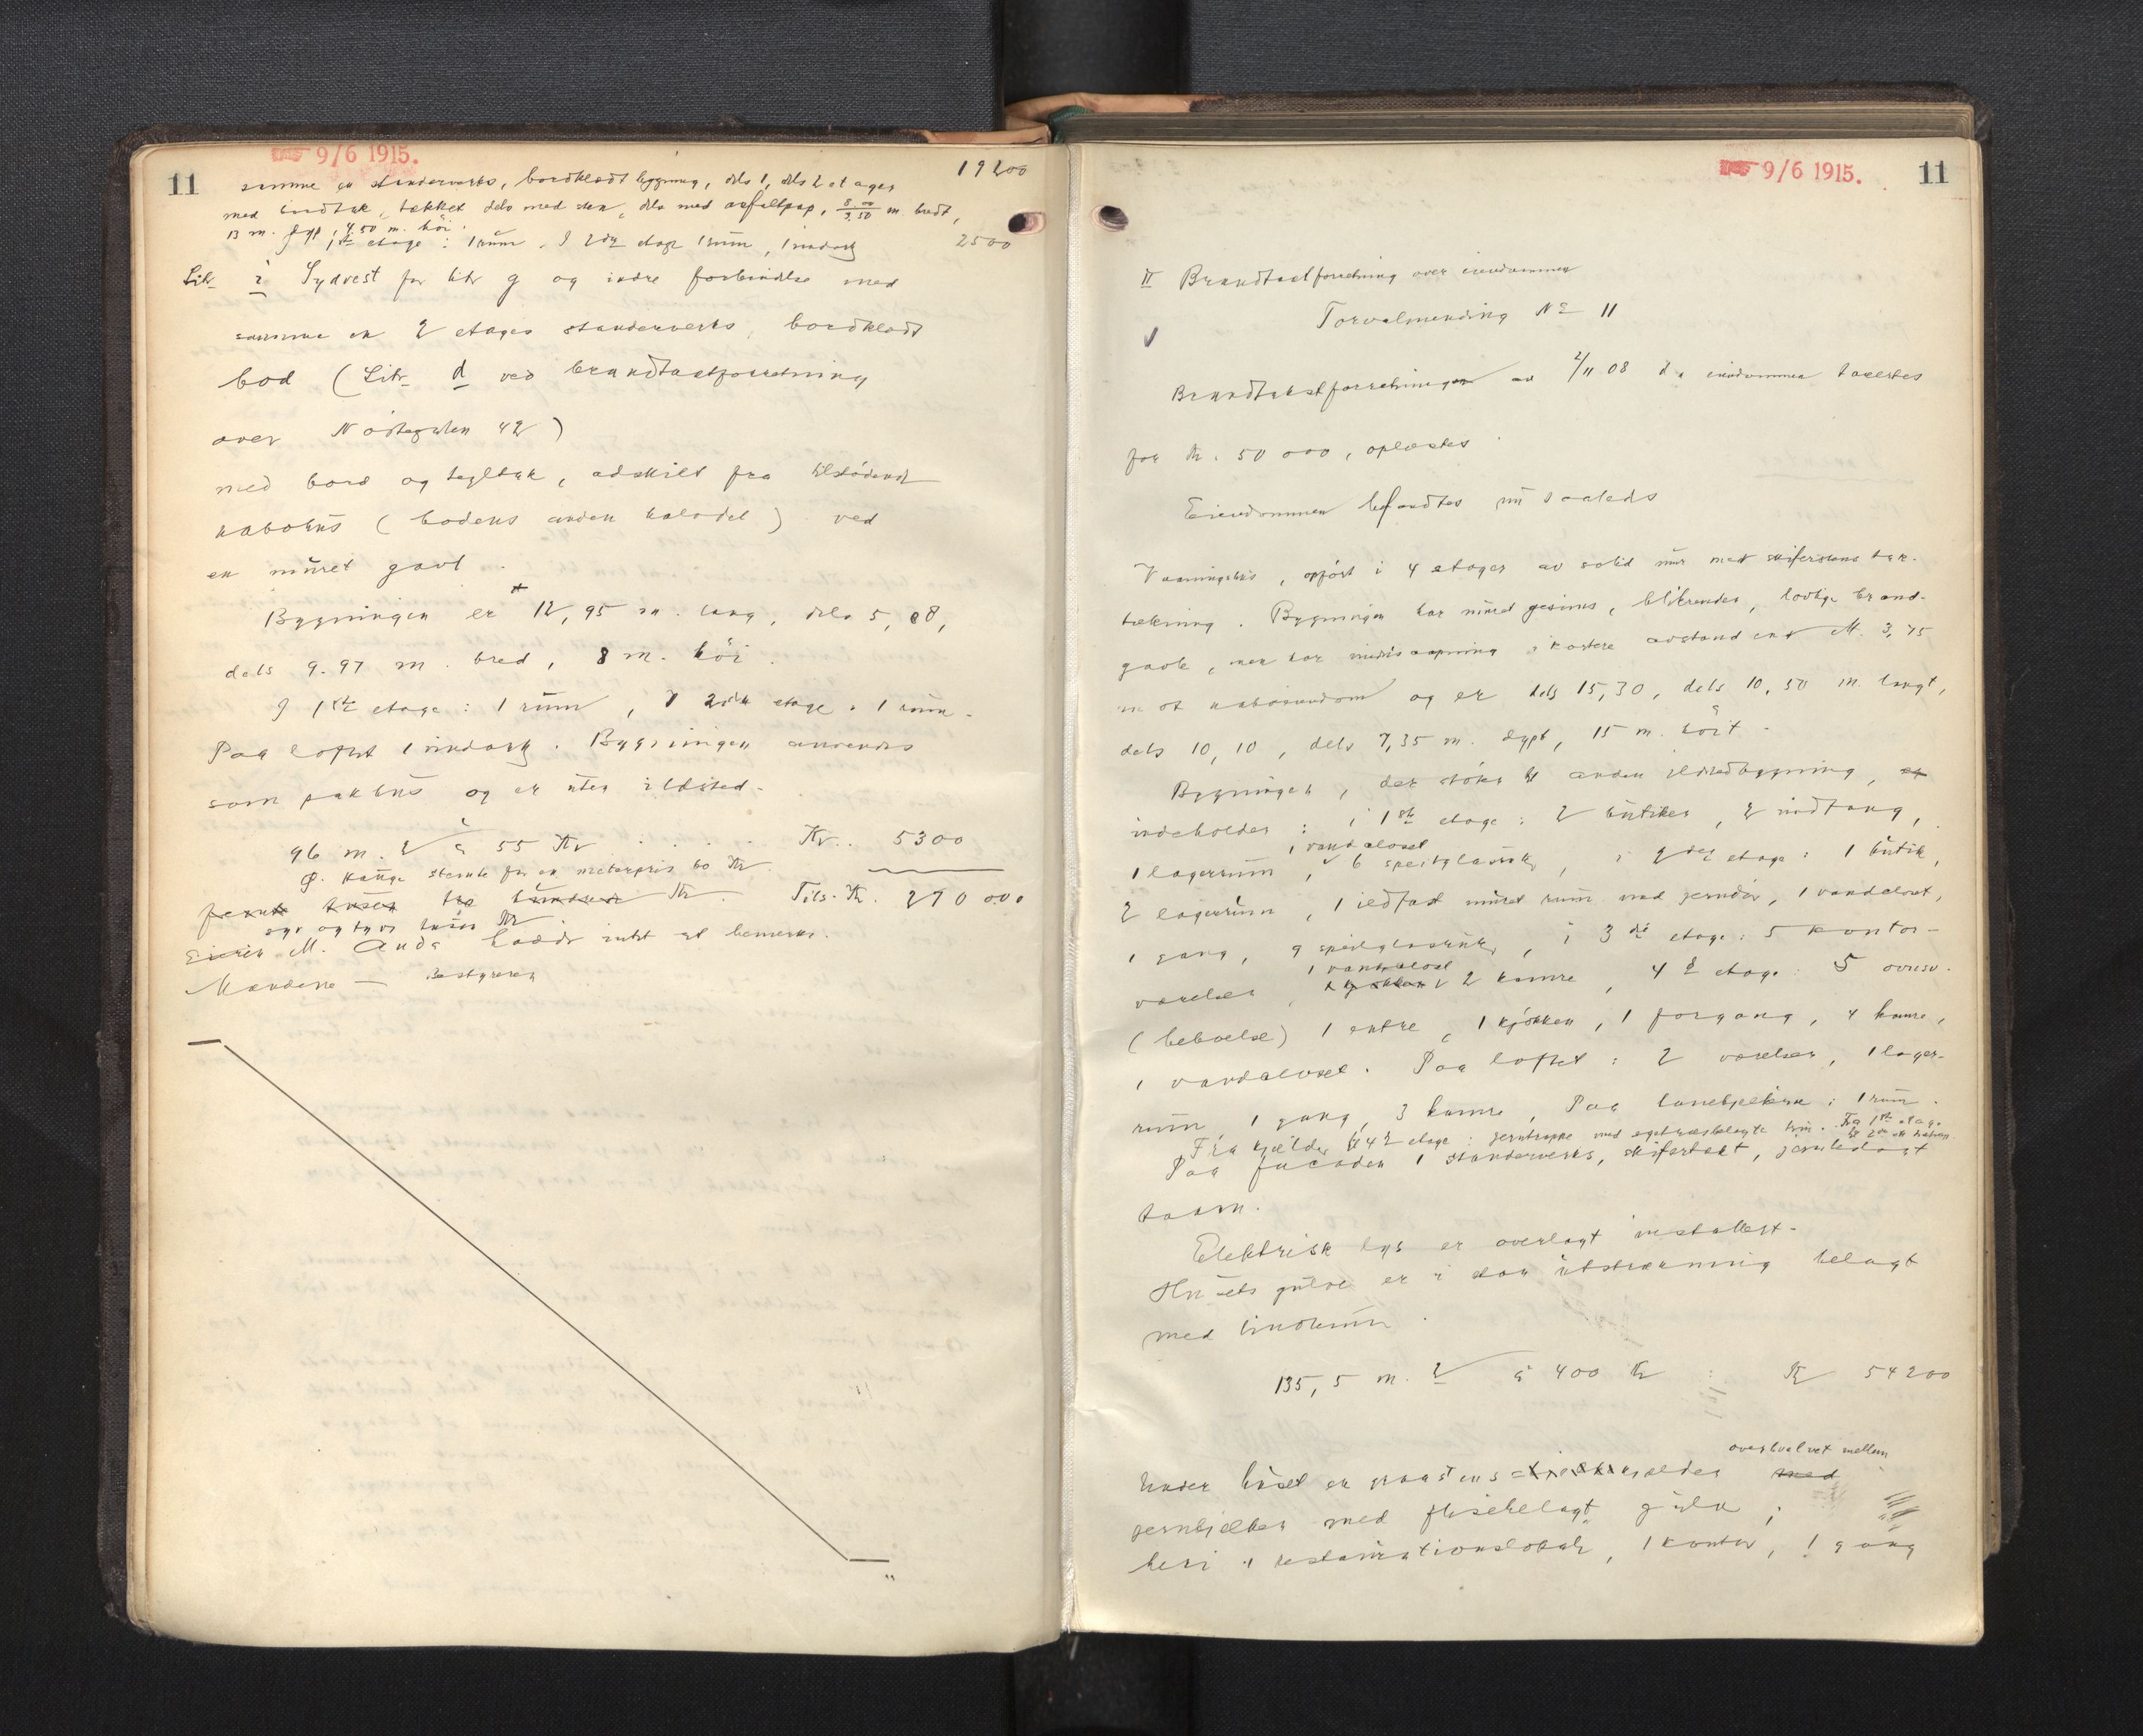 9/6 1915.
11
19200
samme en standerverks, bordklædt bygning, dels 1, dels 2 etages
med bordtak, tækket dels med sten, dels med asfaltpap, 8.00/9.50 m. bredt,
13 m. dypt, 4.50 m. høi.
1ste etage: 1 rum. I 2den etage 1 rum, 1 mørkt
2500
Litr. i Sydvest for litr g og indre forbindelse med
samme en 2 etages standerverks, bordklædt
bod (Litr. d ved brandtaxtforretning
over Nøstegaten 42)
med bord og tegltak, adskilt fra tilstødende
nabohus (bodens anden halvdel) ved
en muret gavl.
Bygningen er 12,95 m. lang, dels 5,08,
dels 9.97 m. bred, 8 m. høi.
I 1ste etage: 1 rum, I 2den etage: 1 rum.
Paa loftet 1 . Bygningen anvendes
som pakhus og er uten ildsted.
96 m. 2 à 55 Kr. Kr. 5300
Ø. Kange stemte for en meterpris 60 Kr.
Tils. Kr. 270 000
tusen Kr
Eieren M. Anda havde intet at bemerke.
Mændene — Bestyreren
9/6 1915.
11
II Brandtaxtforretning over eiendommen
Torvalmending No 11
Brandtakstforretningen av 2/11 08 da eiendommen taxertes
for Kr. 50 000, oplæstes
Eiendommen befandtes nu saaledes
Vaaningshus, opført i 4 etager av solid mur med skiferstens tak-
tækning. Bygningen har muret gesims, blikrender, lovlige brand-
gavle, men har vindusaapning i kortere avstand end M. 3,75
mot naboeiendom og er dels 15,30, dels 10,50 m. langt,
dels 10,10, dels 7,35 m. dypt, 15 m. høit.
Bygningen, der støter til anden ildstedbygning,
indeholder: i 1ste etage: 2 butiker, 2 indgang,
1 vandcloset
1 lagerrum, 6 speilglasruter, i 2den etage: 1 butik,
2 lagerrum, 1 ildfast muret rum med jerndør, 1 vandcloset,
1 gang, 9 speilglasruter, i 3die etage: 5 kontor-
1 vandcloset
værelser, 2 kamre, 4de etage: 5 værelser
(beboelse) 1 entre, 1 kjøkken, 1 forgang, 4 kamre,
1 vandcloset. Paa loftet: 2 værelser, 1 lager-
rum, 1 gang, 3 kamre, Paa hanebjelken: 1 rum.
Fra kjelder til 4de etage: jerntrappe med egetræsbelagte trin. Fra 1ste etage
Paa facaden 1 standerverks, skifertækt, jernbeslaat
taarn.
Elektrisk lys er overlagt installert.
Husets gulve er i stor utstrækning belagt
med linoleum.
135,5 m. 2 à 400 Kr : Kr 54200
overhvelvet mellem
Under huset er graastens kjelder med
jernbjelker med flisebelagt gulv;
heri 1 restaurationslokale, 1 kontor, 1 gang